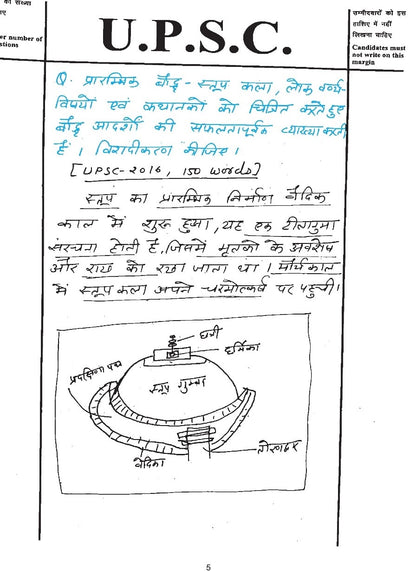 की संख्या
U.P.S.C.
er number of
stions
उम्मीदवारों को इस
हाशिए में नहीं
लिखना चाहिए
Candidates must
not write on this
margin
Q. प्रारम्भिक बौद्ध-स्तूप कला, लोक वर्ण्य
विषयों एवं कथानकों को चित्रित करते हुए
बौद्ध आदर्शों की सफलतापूर्वक व्याख्या करती
है। विशदीकरण कीजिए।
[UPSC-2016, 150 words]
स्तूप का प्रारम्भिक निर्माण वैदिक
काल में शुरू हुआ, यह एक टीलानुमा
संरचना होती है, जिसमें मृतकों के अवशेष
और राख को रखा जाता था। मौर्य काल
में स्तूप कला अपने चरमोत्कर्ष पर पहुची।
छत्री
हर्मिका
प्रदक्षिणा पथ
स्तूप गुम्बद
वेदिका
5